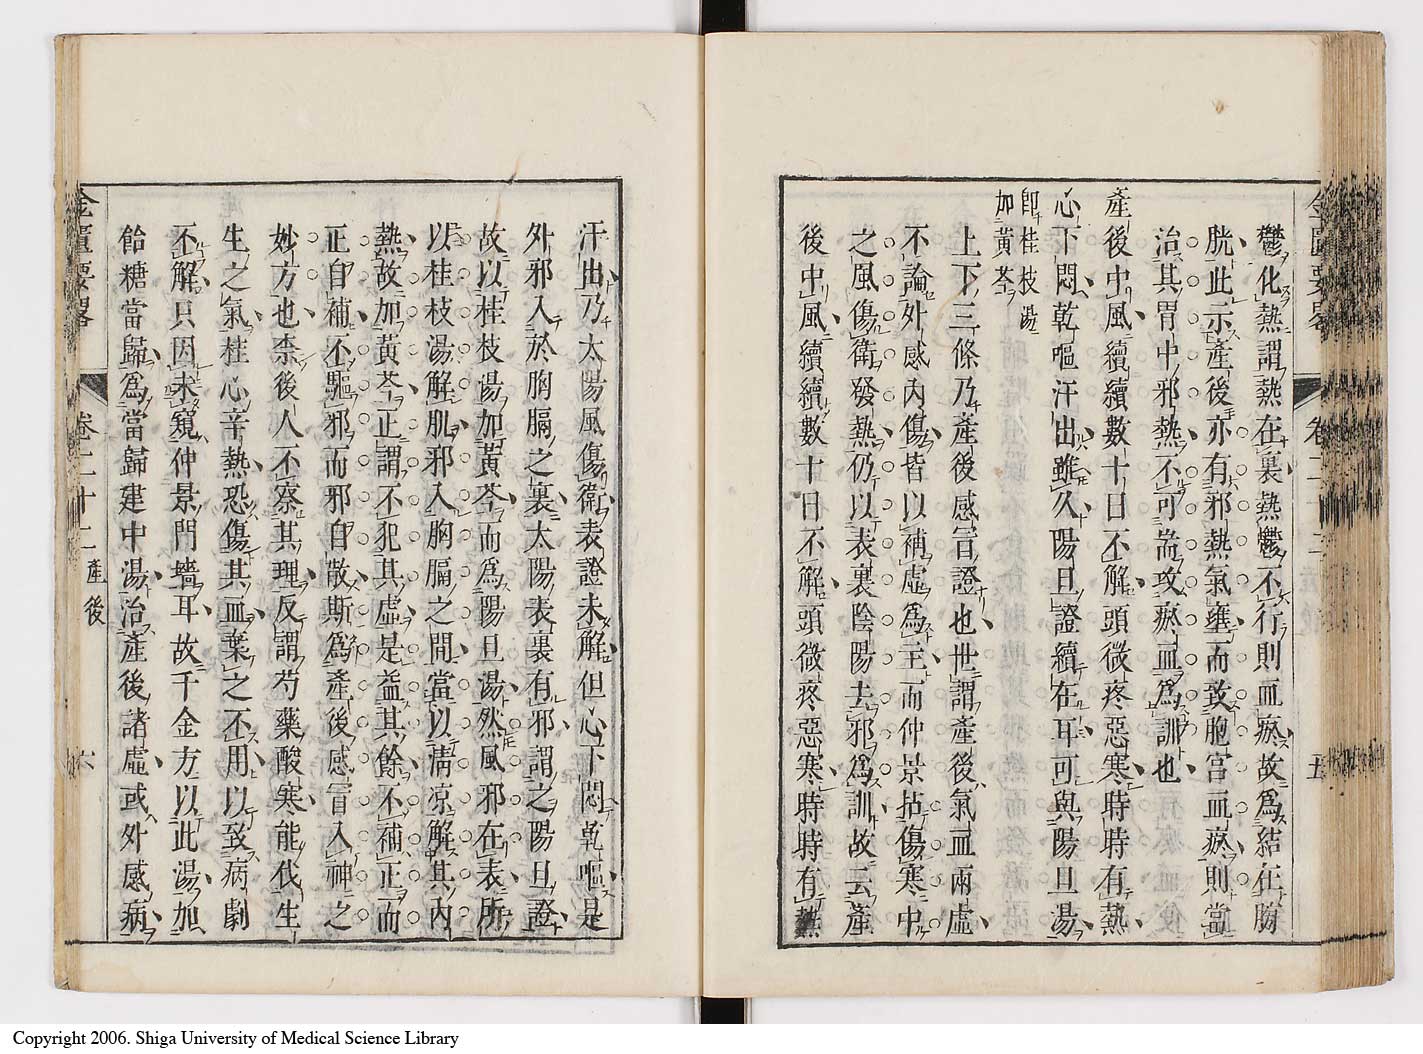 金匱要畧 卷二十二 五
鬱化熱謂熱在裏熱鬱不行則血瘀故爲結在胸
胱此示產後亦有邪熱氣壅而致胞宮血瘀則當
治其胃中邪熱不可耑攻瘀血爲訓也
產後中風續續數十日不解頭微疼惡寒時時有熱
心下悶乾嘔汗出雖久陽旦證續在耳可與陽旦湯
卽桂枝湯
加黃芩
上下三條乃產後感冒證也世謂產後氣血兩虛
不論外感內傷皆以補虛爲主而仲景拈傷寒中
之風傷衛發熱仍以表裏陰陽去邪爲訓故云產
後中風續續數十日不解頭微疼惡寒時時有熱
汗出乃太陽風傷衛表證未解但心下悶乾嘔是
外邪入於胸膈之裏太陽表裏有邪謂之陽旦證
故以桂枝湯加黃芩而爲陽旦湯然風邪在表所
以桂枝湯解肌邪入胸膈之間當以清凉解其內
熱故加黃芩正謂不犯其虛是益其餘不補正而
正自補不驅邪而邪自散斯爲產後感冒入神之
妙方也柰後人不察其理反謂芍藥酸寒能伐生
生之氣桂心辛熱恐傷其血棄之不用以致病劇
不解只因未窺仲景門墻耳故千金方以此湯加
飴糖當歸爲當歸建中湯治產後諸虛或外感病
金匱要畧 卷二十二 產後 六
Copyright 2006. Shiga University of Medical Science Library